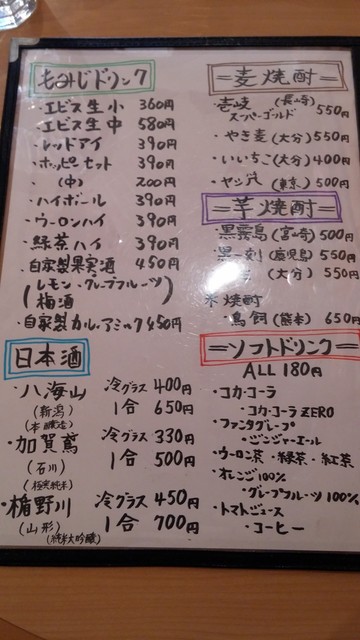 もみじドリンク
・エビス生小 360円
・エビス生中 580円
・レッドアイ 390円
・ホッピーセット 390円
・〃 (中) 200円
・ハイボール 390円
・ウーロンハイ 390円
・緑茶ハイ 390円
・自家製果実酒 450円
(レモン・グレープフルーツ
梅酒)
・自家製カルーアミルク 450円
日本酒
・八海山 冷グラス 400円
(新潟) 1合 650円
(本醸造)
・加賀鳶 冷グラス 330円
(石川) 1合 500円
(極寒純米)
・楯野川 冷グラス 450円
(山形) 1合 700円
(純米大吟醸)
=麦焼酎=
・壱岐 (長崎) 550円
スーパーゴールド
・やき麦(大分) 550円
・いいちこ(大分) 400円
(東京) 500円
=芋焼酎=
黒霧島(宮崎) 500円
(鹿児島) 550円
(大分) 550円
米焼酎
・鳥飼(熊本) 650円
=ソフトドリンク=
ALL 180円
・コカ・コーラ
・コカ・コーラZERO
・ファンタグレープ
・ジンジャーエール
・ウーロン茶・緑茶・紅茶
・オレンジ100%
・グレープフルーツ100%
・トマトジュース
・コーヒー